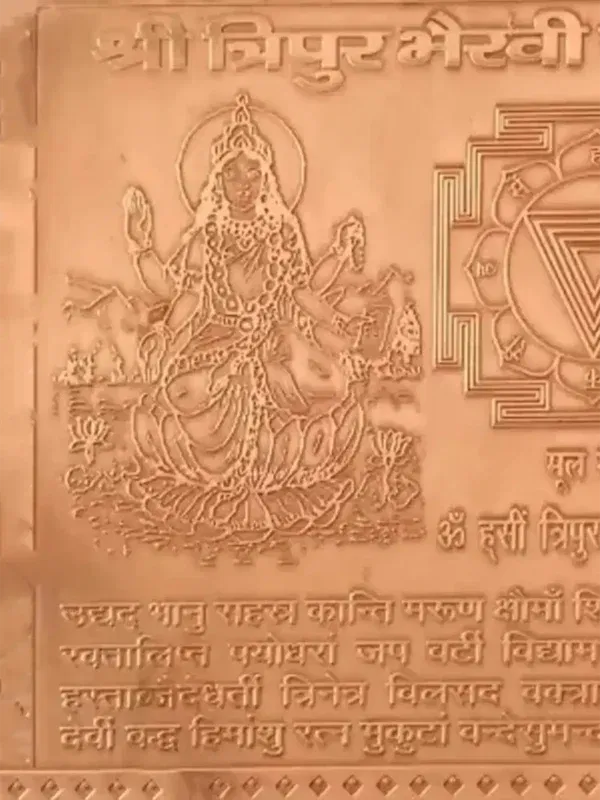 श्री त्रिपुर भैरवी
मूल
ॐ ह्सीं त्रिपुर
उद्यद भानु सहस्र कान्ति मरूण क्षौमाँ
रक्तालिप्त पयोधरां जप वटीं विद्याम
त्रिनेत्र विलसद वक्त्रा
देवीं बद्ध हिमांशु रत्न मुकुटां वन्देसुमन्द